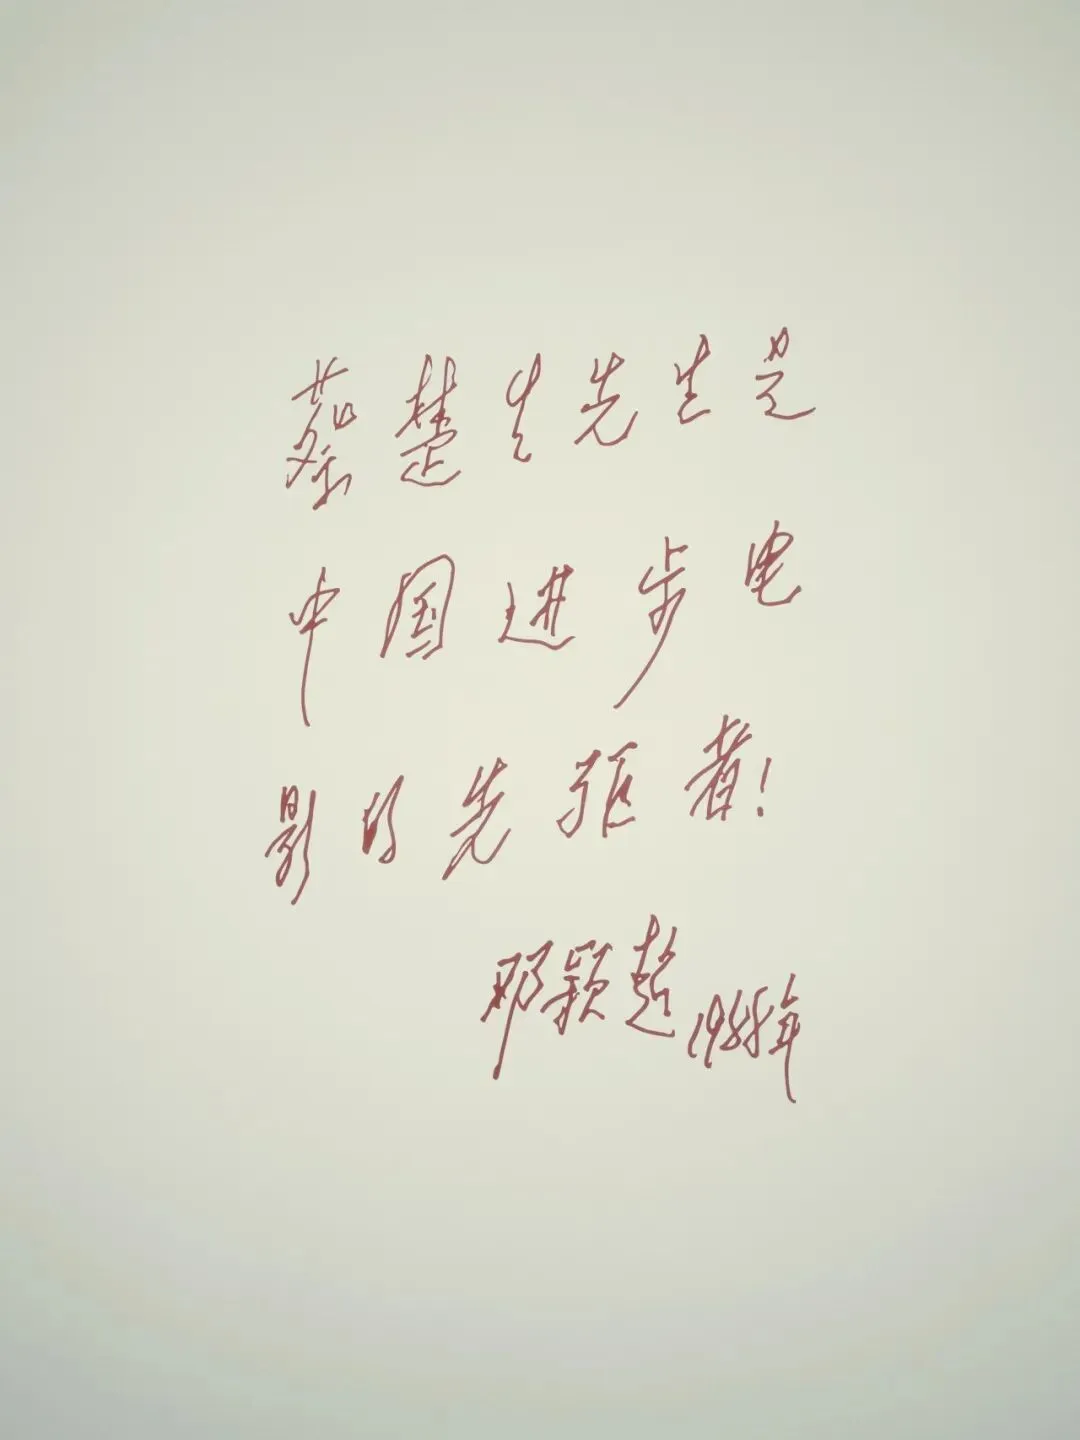 蔡楚生先生是
中国进步电
影的先驱者!
邓颖超 1988年